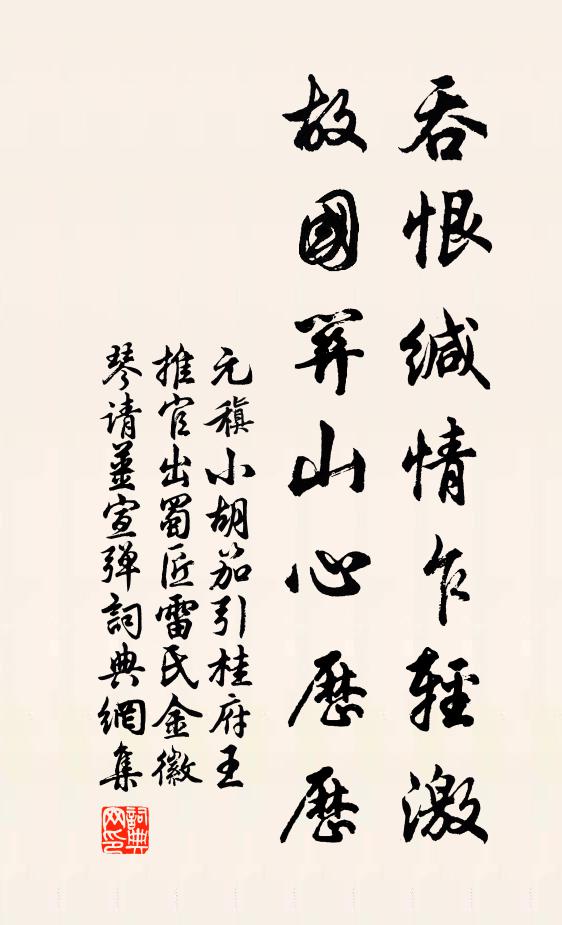 吞恨缄情乍輕激
故國關山心歷歷
元稹小胡笳引桂府王
推官出蜀匠雷氏金徽
琴请薑宣弹詞典網集
詞典网印